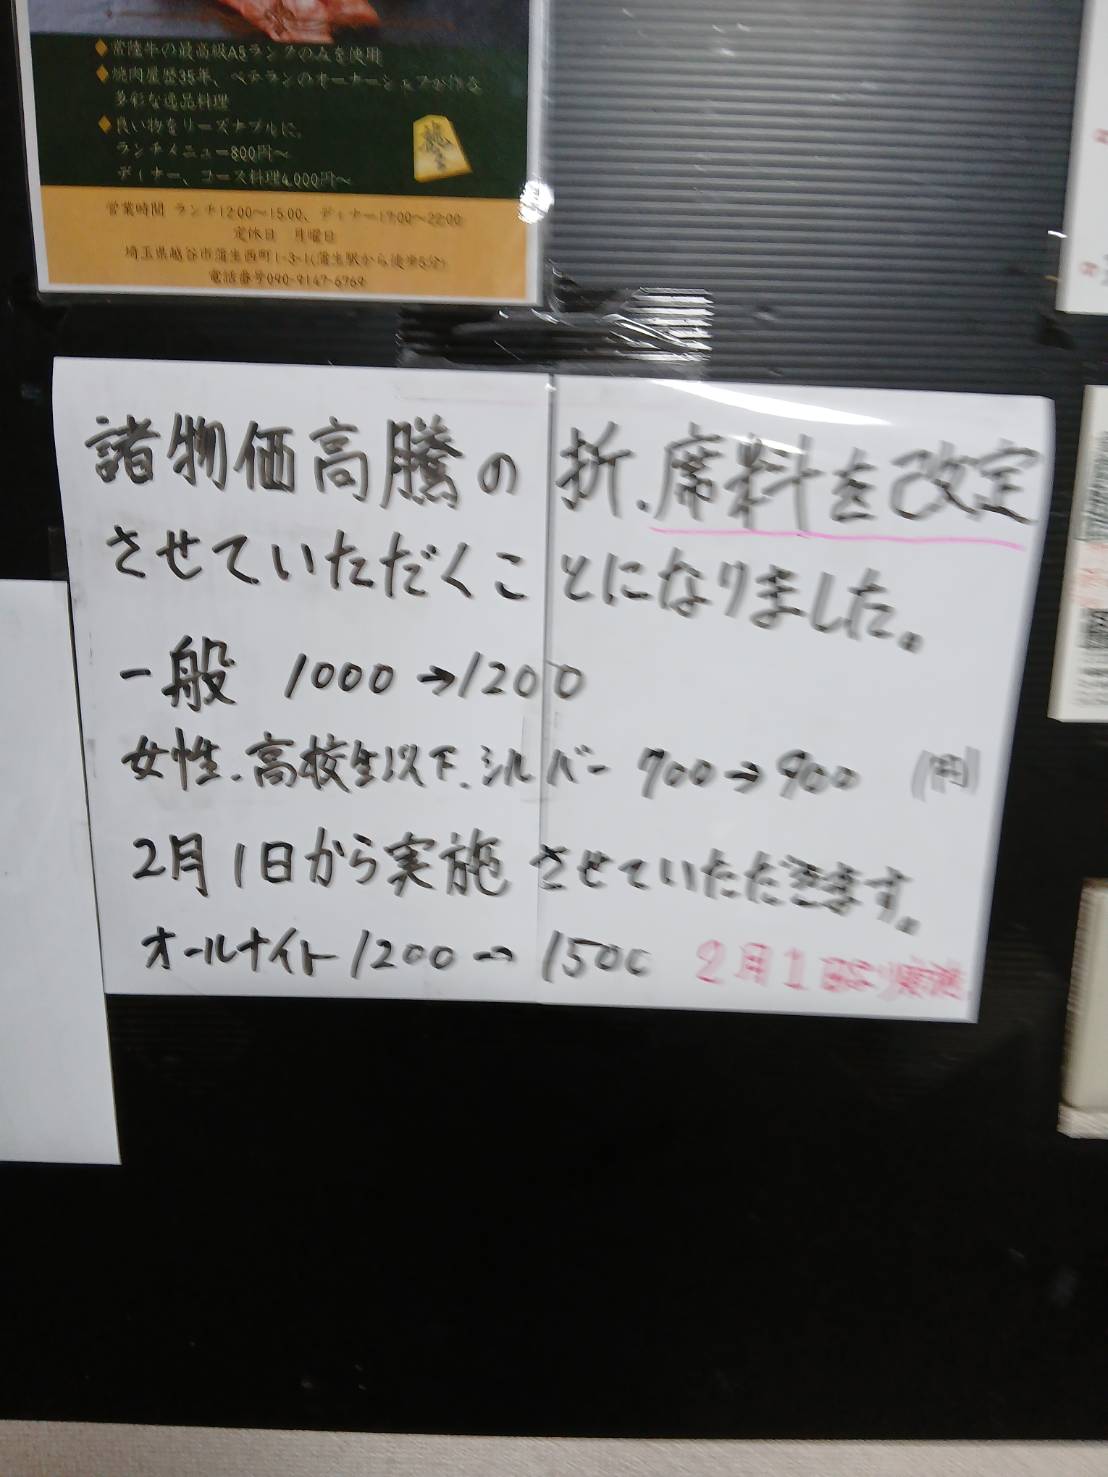 ◆常陸牛の最高級A5ランクのみを使用
◆焼肉屋歴35年、ベテランのオーナーシェフが作る
多彩な逸品料理
◆良い物をリーズナブルに。
ランチメニュー800円〜
ディナー、コース料理4,000円〜
営業時間 ランチ12:00〜15:00、ディナー17:00〜22:00
定休日 月曜日
埼玉県越谷市蒲生西町1-3-1(蒲生駅から徒歩5分)
電話番号090-9147-6769
諸物価高騰の折、席料を改定
させていただくことになりました。
一般 1000→1200
女性、高校生以下、シルバー 700→900 (円)
2月1日から実施させていただきます。
オールナイト1200→1500 2月1日より実施